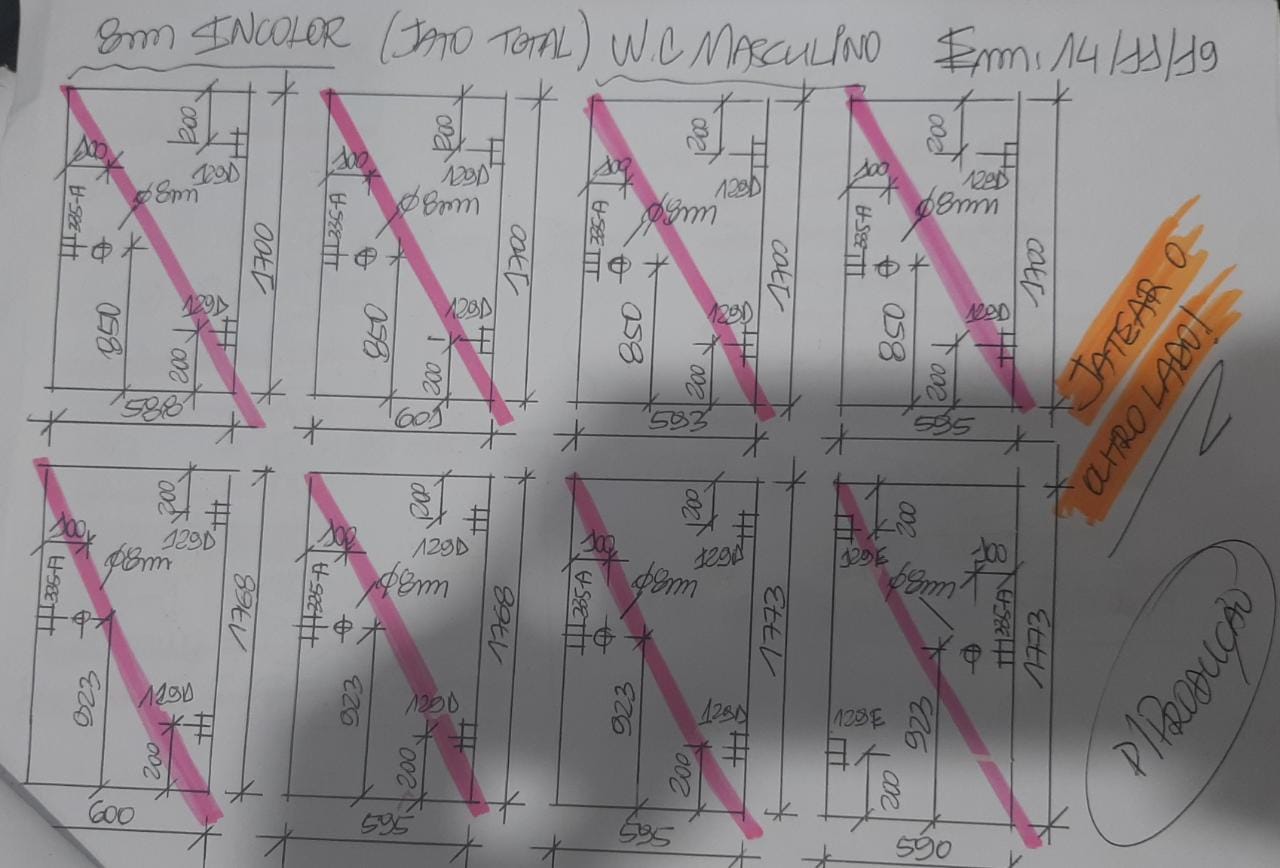 8mm INCOLOR (JATO TOTAL) W.C MASCULINO Emm: 14/11/19
200 200 200 200
100 129D 100 129D 100 129D 100 129D
335-A Ø8mm 1700 335-A Ø8mm 1700 335-A Ø8mm 1700 335-A Ø8mm 1700
850 129D 850 129D 850 129D 850 129D
200 200 200 200
605 593 595
JATEAR O
OUTRO LADO!
200 200 200 200
100 129D 100 129D 100 129D 129E 100
335-A Ø8mm 1768 335-A Ø8mm 1768 335-A Ø8mm 1773 Ø8mm 335-A 1773
923 129D 923 129D 923 129D 129E 923
200 200 200 200
600 595 595 590
P/PRODUÇÃO